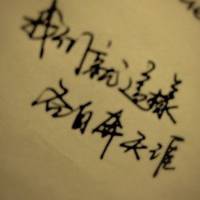 我们就這樣
各自奔天涯